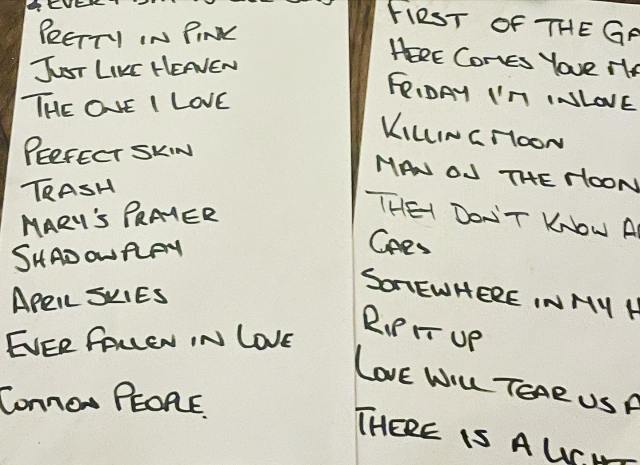 PRETTY IN PINK
JUST LIKE HEAVEN
THE ONE I LOVE
PERFECT SKIN
TRASH
MARY'S PRAYER
SHADOWPLAY
APRIL SKIES
EVER FALLEN IN LOVE
COMMON PEOPLE
FIRST OF THE GA
HERE COMES YOUR MA
FRIDAY I'M IN LOVE
KILLING MOON
MAN ON THE MOON
THEY DON'T KNOW A
CARS
SOMEWHERE IN MY H
RIP IT UP
LOVE WILL TEAR US A
THERE IS A LIGHT